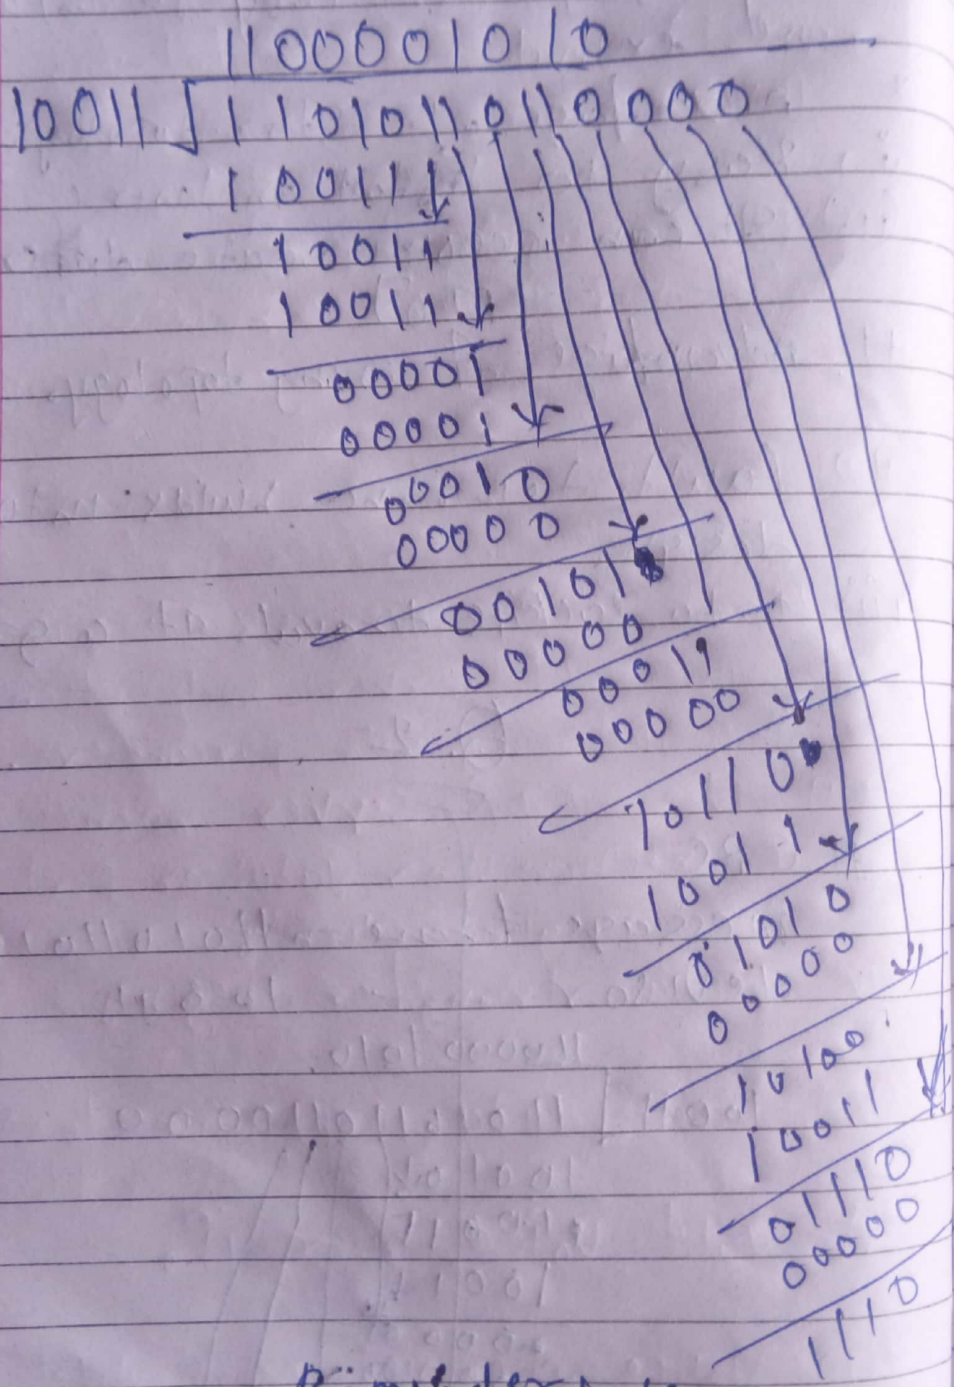 1100001010
10011 √11010110110000
100111
10011
10011
00001
00001
00010
00000
00101
00000
00011
00000
10110
10011
01010
00000
10100
10011
01110
00000
1110